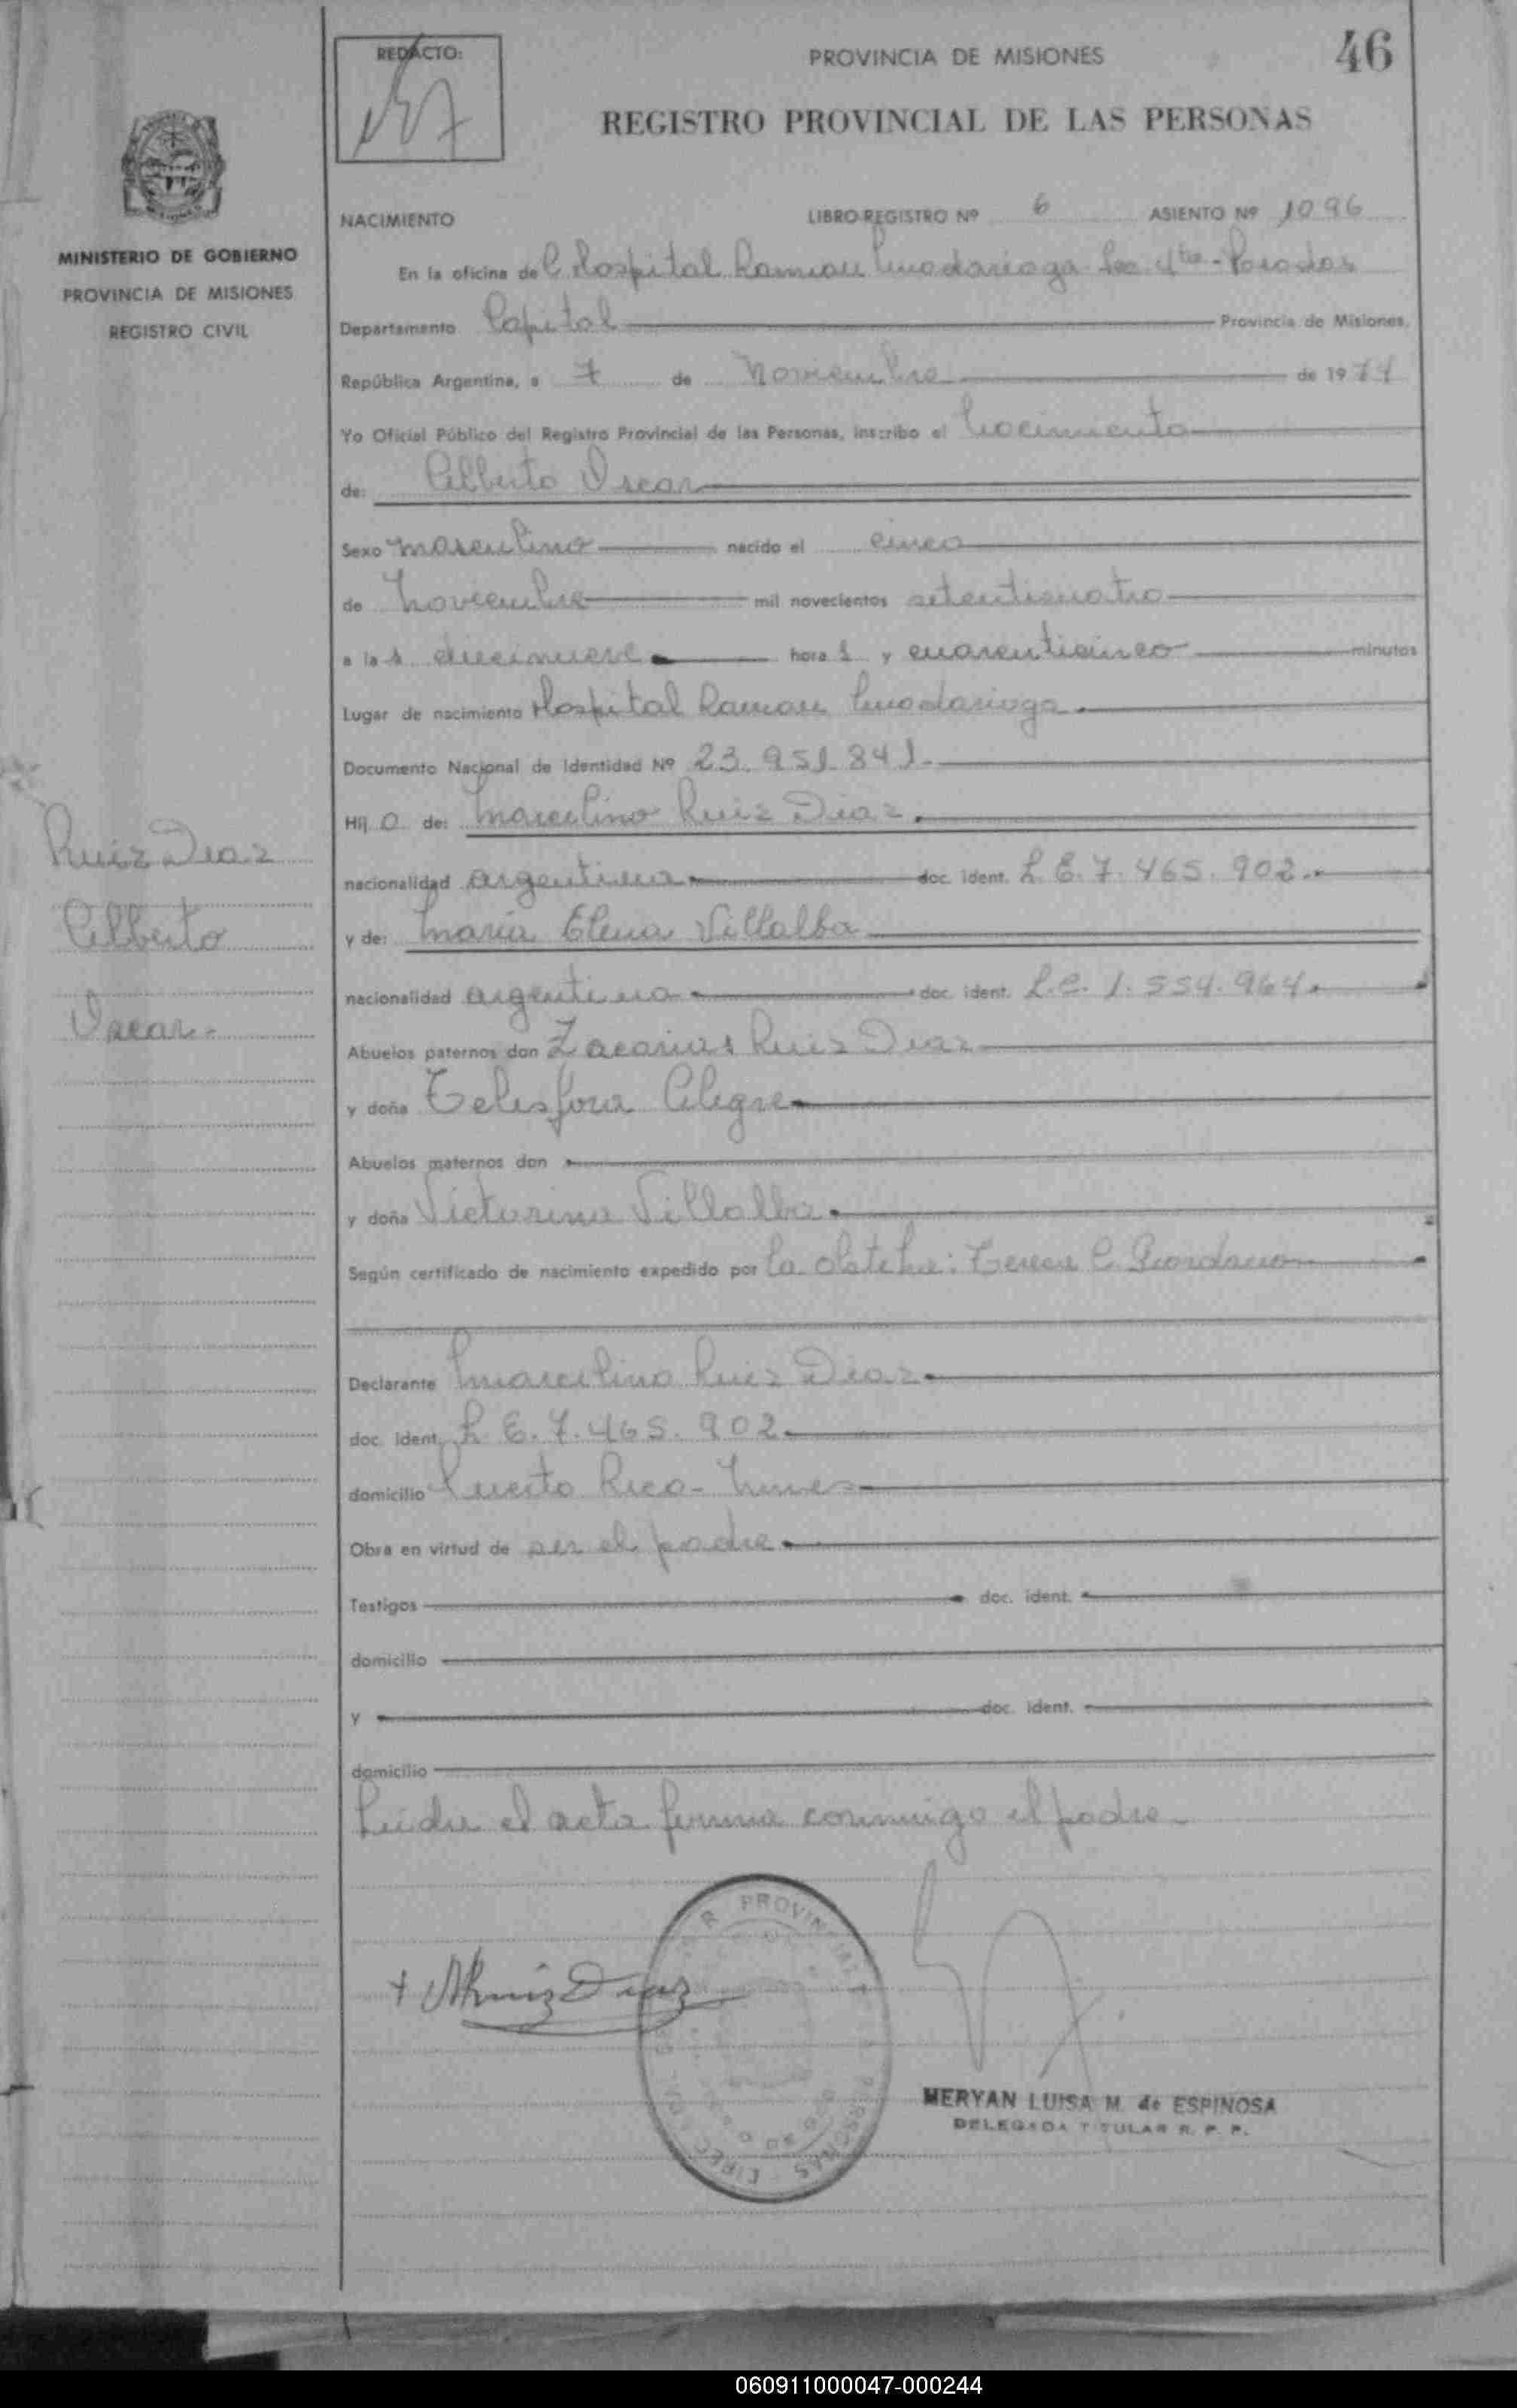 46
REDACTO:
PROVINCIA DE MISIONES
REGISTRO PROVINCIAL DE LAS PERSONAS
MINISTERIO DE GOBIERNO
PROVINCIA DE MISIONES
REGISTRO CIVIL
NACIMIENTO LIBRO-REGISTRO Nº 6 ASIENTO Nº 1096
En la oficina del Hospital Ramon Madariaga Sec 4ta - Posadas
Departamento Capital Provincia de Misiones.
República Argentina, a 7 de Noviembre de 1974
Yo Oficial Público del Registro Provincial de las Personas, inscribo el Nacimiento
de: Alberto Oscar
Sexo masculino nacido el cinco
de Noviembre mil novecientos setenticuatro
a las diecinueve horas y cuarenticinco minutos
Lugar de nacimiento Hospital Ramon Madariaga.
Documento Nacional de Identidad Nº 23.951.841.-
Hijo de: Marcelino Ruiz Diaz.
nacionalidad argentina doc. ident. L.E. 7.465.902.-
y de: Maria Elena Villalba
nacionalidad argentina doc. ident. L.C. 1.554.964.
Abuelos paternos don Zacarias Ruiz Diaz
y doña Telesfora Alegre
Abuelos maternos don
y doña Victorina Villalba.
Según certificado de nacimiento expedido por la obstetra: Teresa C. Giordano
Declarante Marcelino Ruiz Diaz
doc. ident. L.E. 7.465.902
domicilio Puerto Rico - Mnes
Obra en virtud de ser el padre
Testigos doc. ident.
domicilio
y doc. ident.
domicilio
Leida el acta firma conmigo el padre -
Ruiz Diaz
Alberto
Oscar.-
+ MRuiz Diaz
MERYAN LUISA M. de ESPINOSA
DELEGADA TITULAR R. P. P.
060911000047-000244